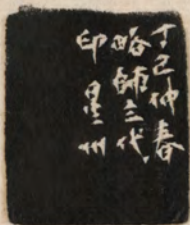 丁巳仲春
略師三代
印星州